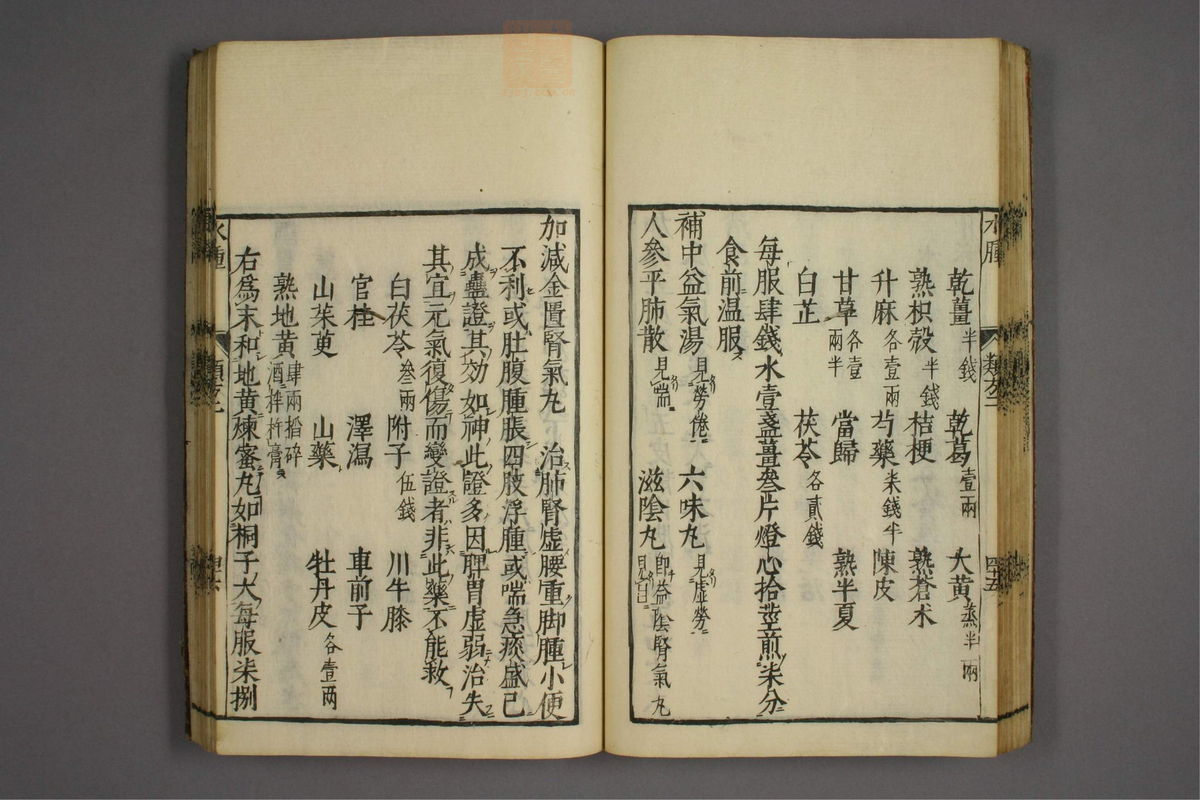 水腫
類叁
四五
乾薑半錢 乾葛壹兩 大黃蒸半兩
熟枳殼半錢 桔梗 熟蒼朮
升麻各壹兩 芍藥柒錢半 陳皮
甘草各壹兩半 當歸 熟半夏
白芷 茯苓各貳錢
每服肆錢水壹盞薑叁片燈心拾莖煎柒分
食前溫服
補中益氣湯見勞倦 六味丸見虛勞
人參平肺散見喘 滋陰丸即益陰腎氣丸見
加減金匱腎氣丸 治肺腎虛腰重脚腫小便
不利或肚腹腫脹四肢浮腫或喘急痰盛已
成蠱證其効如神此證多因脾胃虛弱治失
其宜元氣復傷而變證者非此藥不能救
白茯苓叁兩 附子伍錢 川牛膝
官桂 澤瀉 車前子
山茱萸 山藥 牡丹皮各壹兩
熟地黃肆兩搯碎酒拌杵膏
右爲末和地黃煉蜜丸如桐子大每服柒捌
水腫
類叁
四六